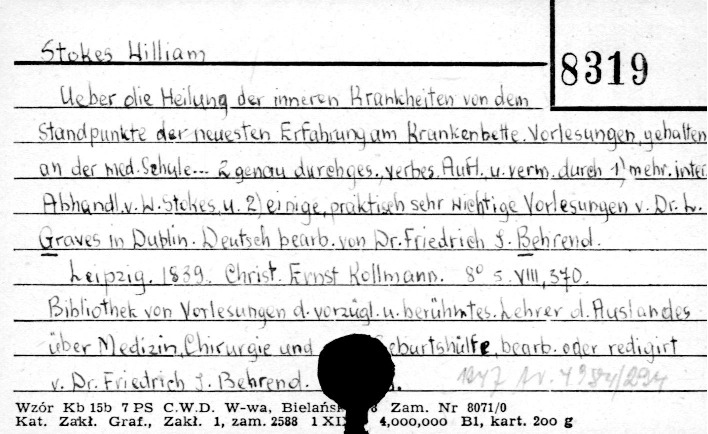 Stokes William
8319
Ueber die Heilung der inneren Krankheiten von dem
Standpunkte der neuesten Erfahrung am Krankenbette. Vorlesungen, gehalten
an der med. Schule... 2 genau durchges., verbes. Aufl. u. verm. durch 1) mehr. inter.
Abhandl. v. W. Stokes, u. 2) einige, praktisch sehr wichtige Vorlesungen v. Dr. L.
Graves in Dublin. Deutsch bearb. von Dr. Friedrich J. Behrend.
Leipzig. 1839. Christ. Ernst Kollmann. 8° s. VIII, 370.
Bibliothek von Vorlesungen d. vorzügl. u. berühmtes. Lehrer d. Auslandes
über Medizin, Chirurgie und Geburtshülfe, bearb. oder redigirt
v. Dr. Friedrich J. Behrend.
Wzór Kb 15b 7 PS C.W.D. W-wa, Bielańs 8 Zam. Nr 8071/0
Kat. Zakł. Graf., Zakł. 1, zam. 2588 1 XI 4,000,000 B1, kart. 200 g